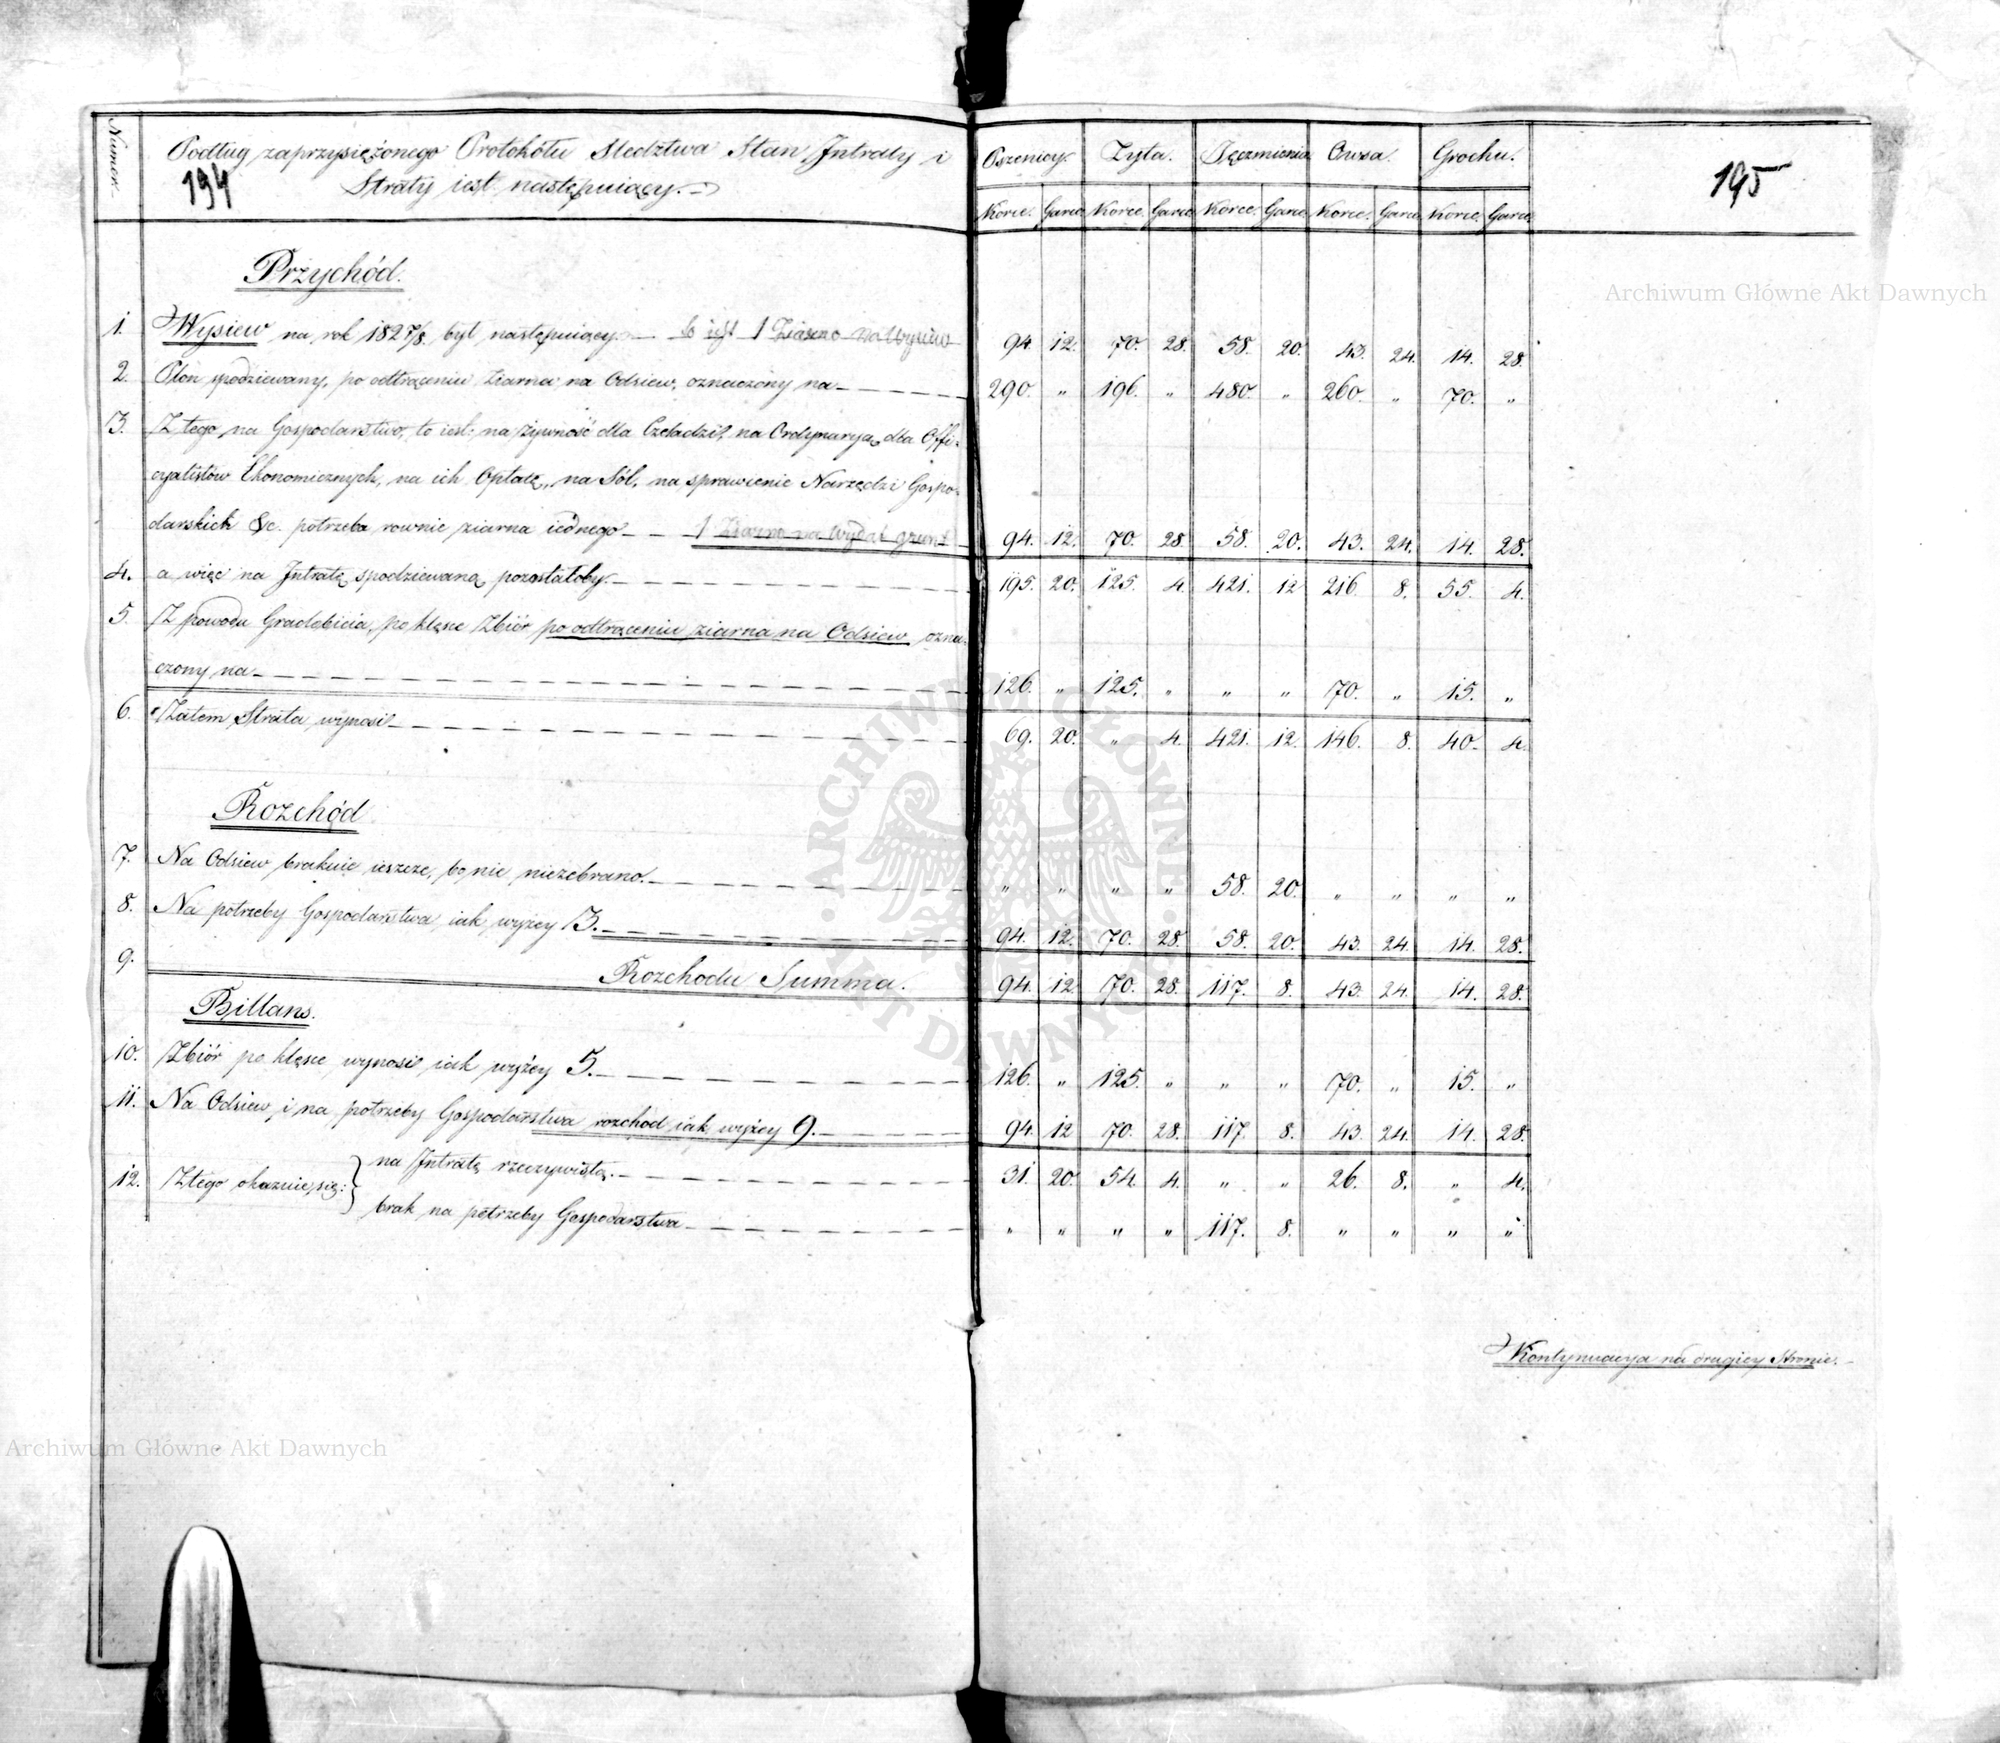 Numer.
Podług zaprzysiężonego Protokółu Sledztwa Stan Intraty i
Straty iest następuiący.
194
Pszenicy. Zyta. Jęczmienia Owsa. Grochu.
Korce. Garce Korce. Garce Korce. Garce. Korce. Garce Korce. Garce.
195
Przychód.
1. Wysiew na rok 1827/8. był następuiący. to iest 1 Ziarno na Wysiew 94. 12. 70. 28. 58. 20. 43. 24. 14. 28.
2. Plon spodziewany, po odtrąceniu ziarna na Odsiew, oznaczony na 290. " 196. " 480. " 260. " 70. "
3. Z tego, na Gospodarstwo, to iest: na żywność dla Czeladzi, na Ordynarya, dla Offi-
cyalistów Ekonomicznych, na ich Opłatę, na Sól, na sprawienie Narzędzi Gospo-
darskich &c. potrzeba rownie ziarna iednego 1 Ziarno na wydat grunt 94. 12. 70. 28. 58. 20. 43. 24. 14. 28.
4. a więc na Intratę spodziewaną pozostałoby. 195. 20. 125. 4. 421. 12 216. 8. 55. 4.
5. Z powodu Gradobicia, po klęsce Zbiór po odtrąceniu ziarna na Odsiew, ozna-
czony na 126. " 125. " " " 70. " 15. "
6. Zatem Strata wynosi 69. 20. " 4. 421. 12. 146. 8. 40. 4.
Rozchód
7. Na Odsiew brakuie ieszcze, bo nic niezebrano. " " " " 58. 20. " " " "
8. Na potrzeby Gospodarstwa iak wyżey 3. 94. 12. 70. 28. 58. 20. 43. 24. 14. 28.
9. Rozchodu Summa. 94. 12 70. 28. 117. 8. 43. 24. 14. 28.
Billans.
10. Zbiór po klęsce wynosi iak wyżey 5. 126. " 125. " " " 70. " 15. "
11. Na Odsiew, i na potrzeby Gospodarstwa rozchód iak wyżey 9. 94. 12 70. 28. 117. 8. 43. 24. 14. 28.
12. Z tego okazuie się: na Intratę rzeczywistą. 31. 20. 54. 4. " " 26. 8. " 4.
brak na potrzeby Gospodarstwa " " " " 117. 8. " " " "
Kontynuacya na drugiey Stronie.
Archiwum Główne Akt Dawnych
Archiwum Główne Akt Dawnych
ARCHIWUM GŁÓWNE AKT DAWNYCH